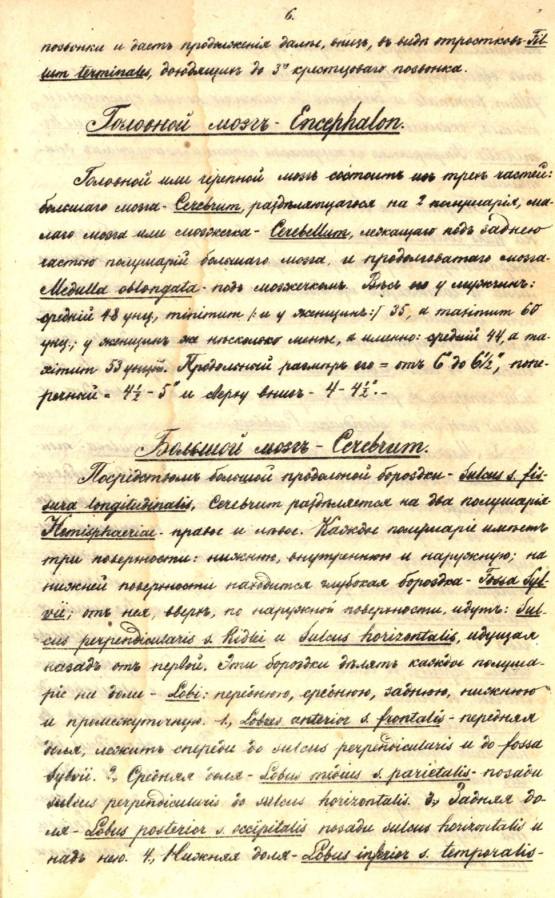 6.
позвонки и даетъ продолженія далѣе, внизъ, въ видѣ отростковъ- Fi-
lum terminale, доходящихъ до 3го крестцоваго позвонка.
Головной мозгъ - Encephalon.
Головной или черепной мозгъ состоитъ изъ трехъ частей:
большаго мозга - Cerebrum, раздѣляющагося на 2 полушарія, ма-
лаго мозга или мозжечка - Cerebellum, лежащаго подъ заднею
частью полушарій большаго мозга, и продолговатаго мозга-
Medulla oblongata - подъ мозжечкомъ. Вѣсъ его у мужчинъ:
средній 48 унц, minimum /: и у женщинъ :/ 35, а maximum 60
унц.; у женщинъ же нѣсколько менѣе, а именно: средній 44, а ma-
ximum 53 унціи. Продольный размѣръ его = отъ 6" до 6½", попе-
речный = 4½ - 5" и сверху внизъ - 4 - 4½".-
Большой мозгъ - Cerebrum.
Посредствомъ большой продольной бороздки - Sulcus s. fis-
sura longitudinalis, Cerebrum раздѣляется на два полушарія
Hemisphaeriae - правое и лѣвое. Каждое полушаріе имѣетъ
три поверхности: нижнюю, внутреннюю и наружную; на
нижней поверхности находится глубокая бороздка - Fossa Syl-
vii; отъ нея, вверхъ, по наружной поверхности, идутъ: Sul-
cus perpendicularis s. Ridlei и Sulcus horizontalis, идущая
назадъ отъ первой. Эти бороздки дѣлятъ каждое полуша-
ріе на доли - Lobi: переднюю, среднюю, заднюю, нижнюю
и промежуточную. 1., Lobus anterior s. frontalis - передняя
доля, лежитъ спереди до sulcus perpendicularis и до fossa
Sylvii. 2., Средняя доля - Lobus medius s. parietalis - позади
sulcus perpendicularis до sulcus horizontalis. 3., Задняя до-
ля - Lobus posterior s. occipitalis позади sulcus horizontalis и
надъ нею. 4., Нижняя доля - Lobus inferior s. temporalis-